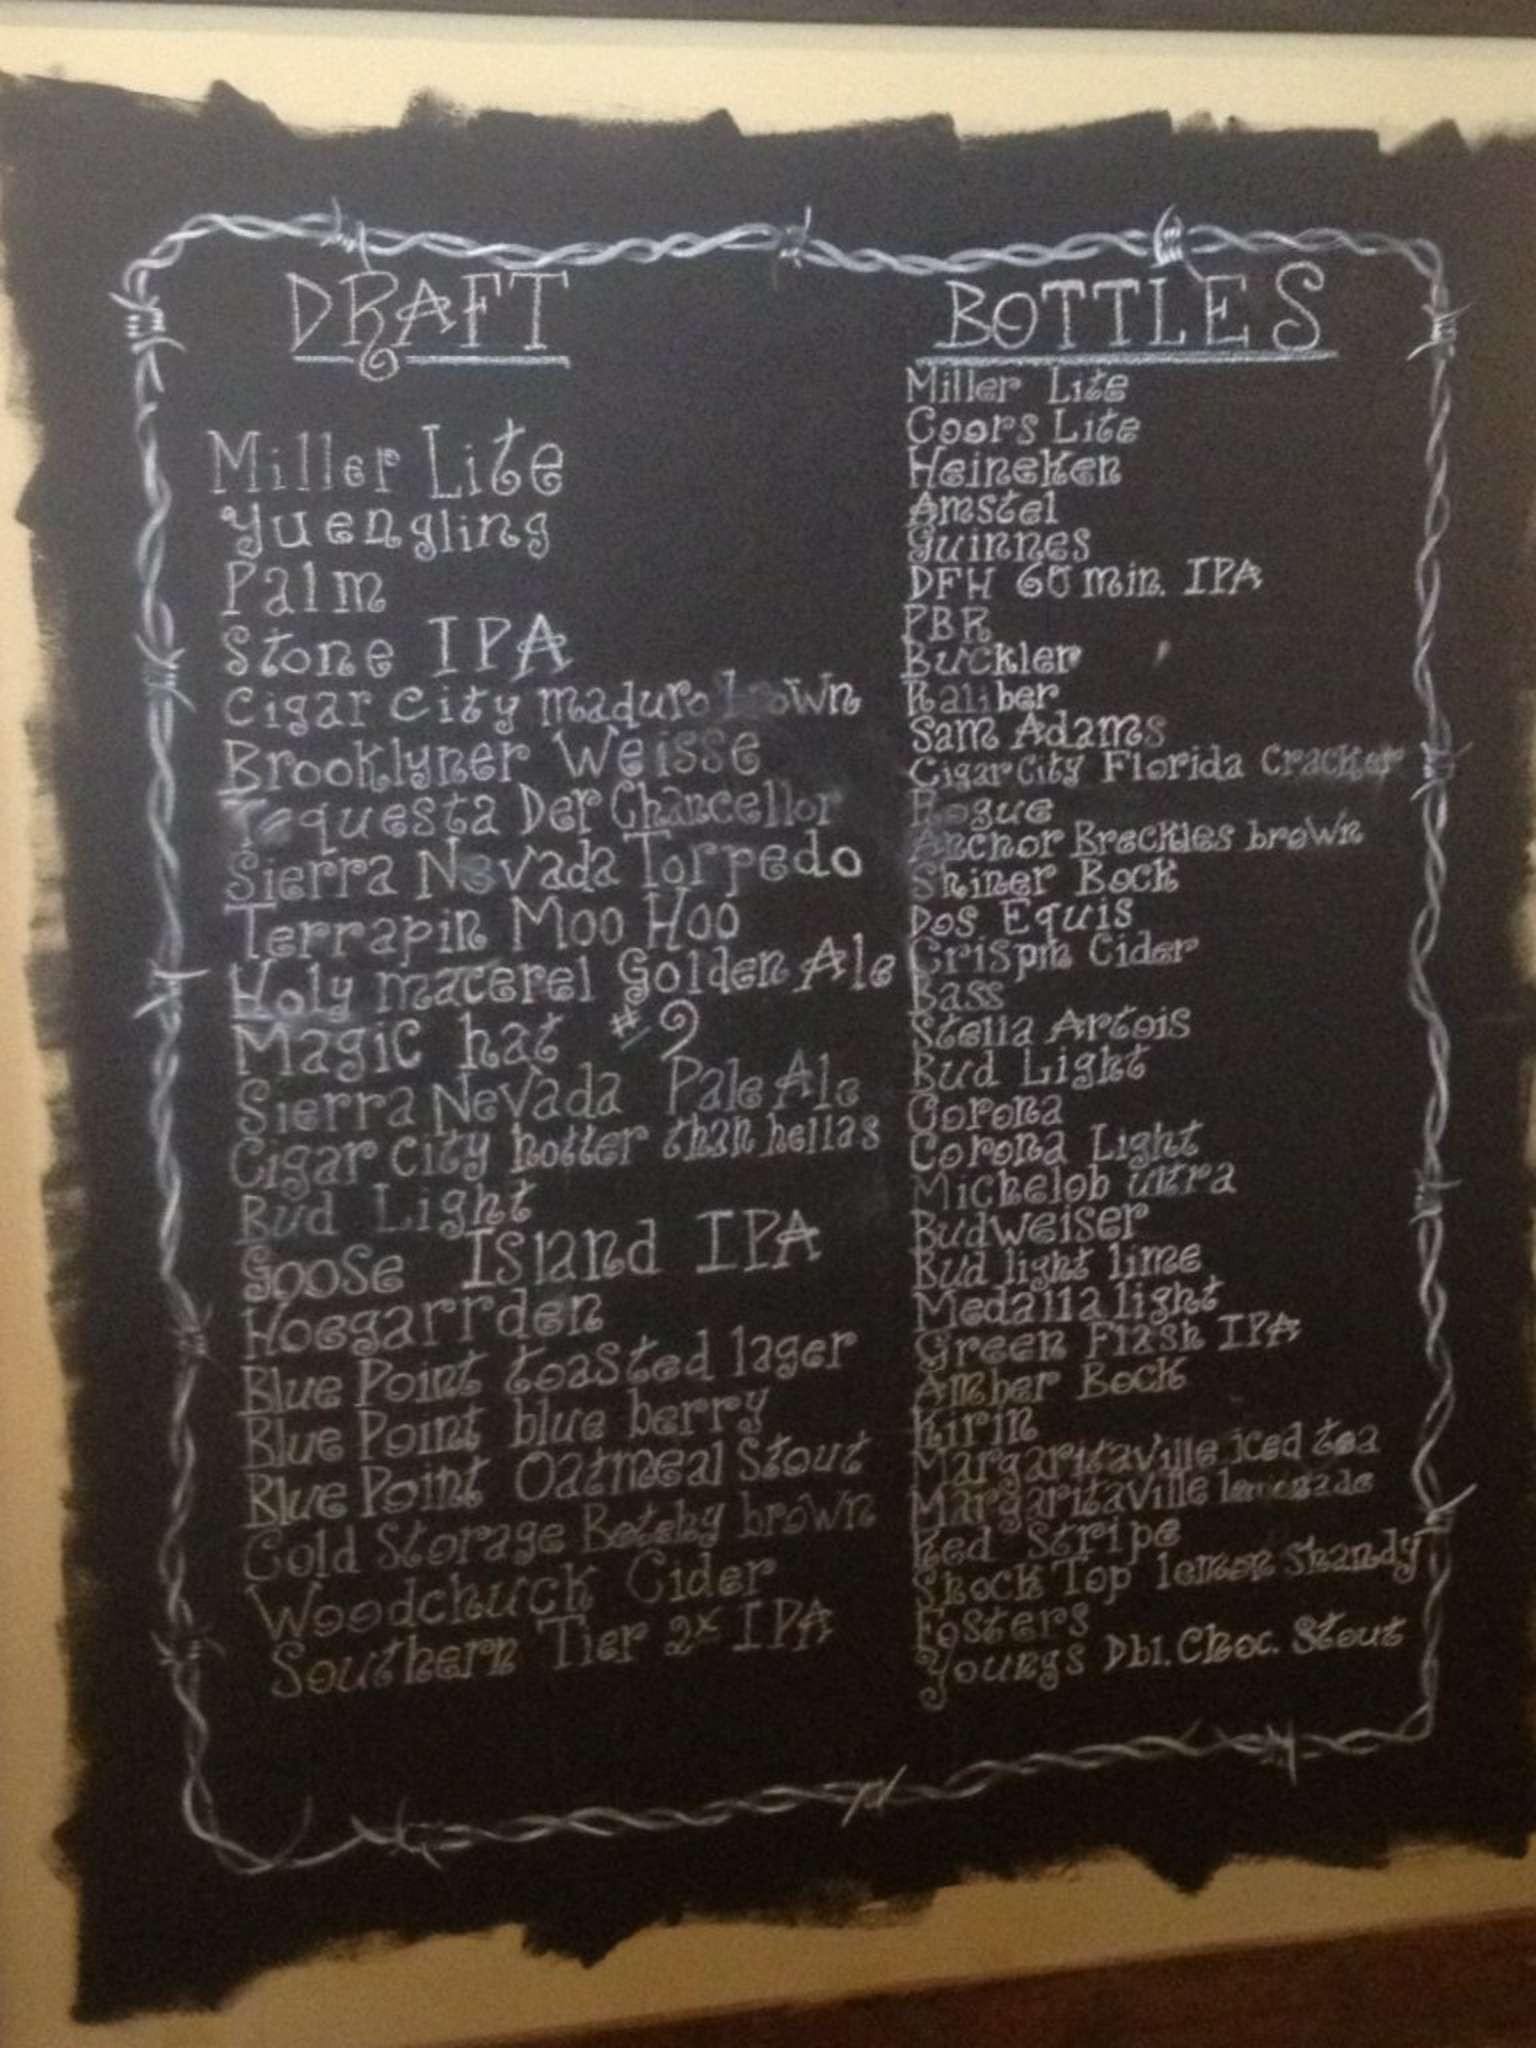 DRAFT
Miller Lite
Yuengling
Palm
Stone IPA
Cigar City maduro brown
Brooklyner Weisse
Tequesta Der Chancellor
Sierra Nevada Torpedo
Terrapin Moo Hoo
Holy macerel Golden Ale
Magic hat #9
Sierra Nevada Pale Ale
Cigar City hotter than hellas
Bud Light
Goose Island IPA
Hoegarrden
Blue Point toasted lager
Blue Point blue berry
Blue Point Oatmeal Stout
Cold Storage brown
Woodchuck Cider
Southern Tier 2x IPA
BOTTLES
Miller Lite
Coors Lite
Heineken
Amstel
Guinnes
DFH 60 min. IPA
PBR
Buckler
Kaliber
Sam Adams
Cigar City Florida Cracker
Rogue
Anchor Breckles brown
Shiner Bock
Dos Equis
Crispin Cider
Bass
Stella Artois
Bud Light
Corona
Corona Light
Michelob ultra
Budweiser
Bud light lime
Medalla light
Green Flash IPA
Amber Bock
Kirin
Margaritaville iced tea
Margaritaville lemonade
Red Stripe
Shock Top lemon shandy
Fosters
Youngs Dbl. Choc. Stout